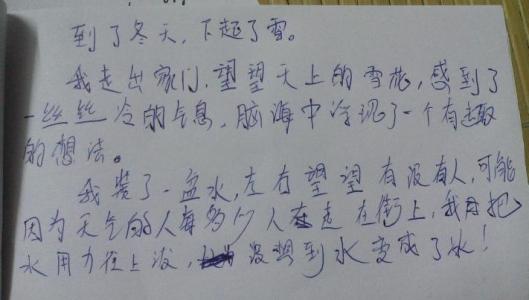 到了冬天，下起了雪。
我走出家门，望望天上的雪花，感到了
一丝丝冷的气息，脑海中浮现了一个有趣
的想法。
我装了一盆水，左右望望有没有人，可能
因为天气的人每多少人走在街上，我把
水用力往上泼，没想到水变成了冰！